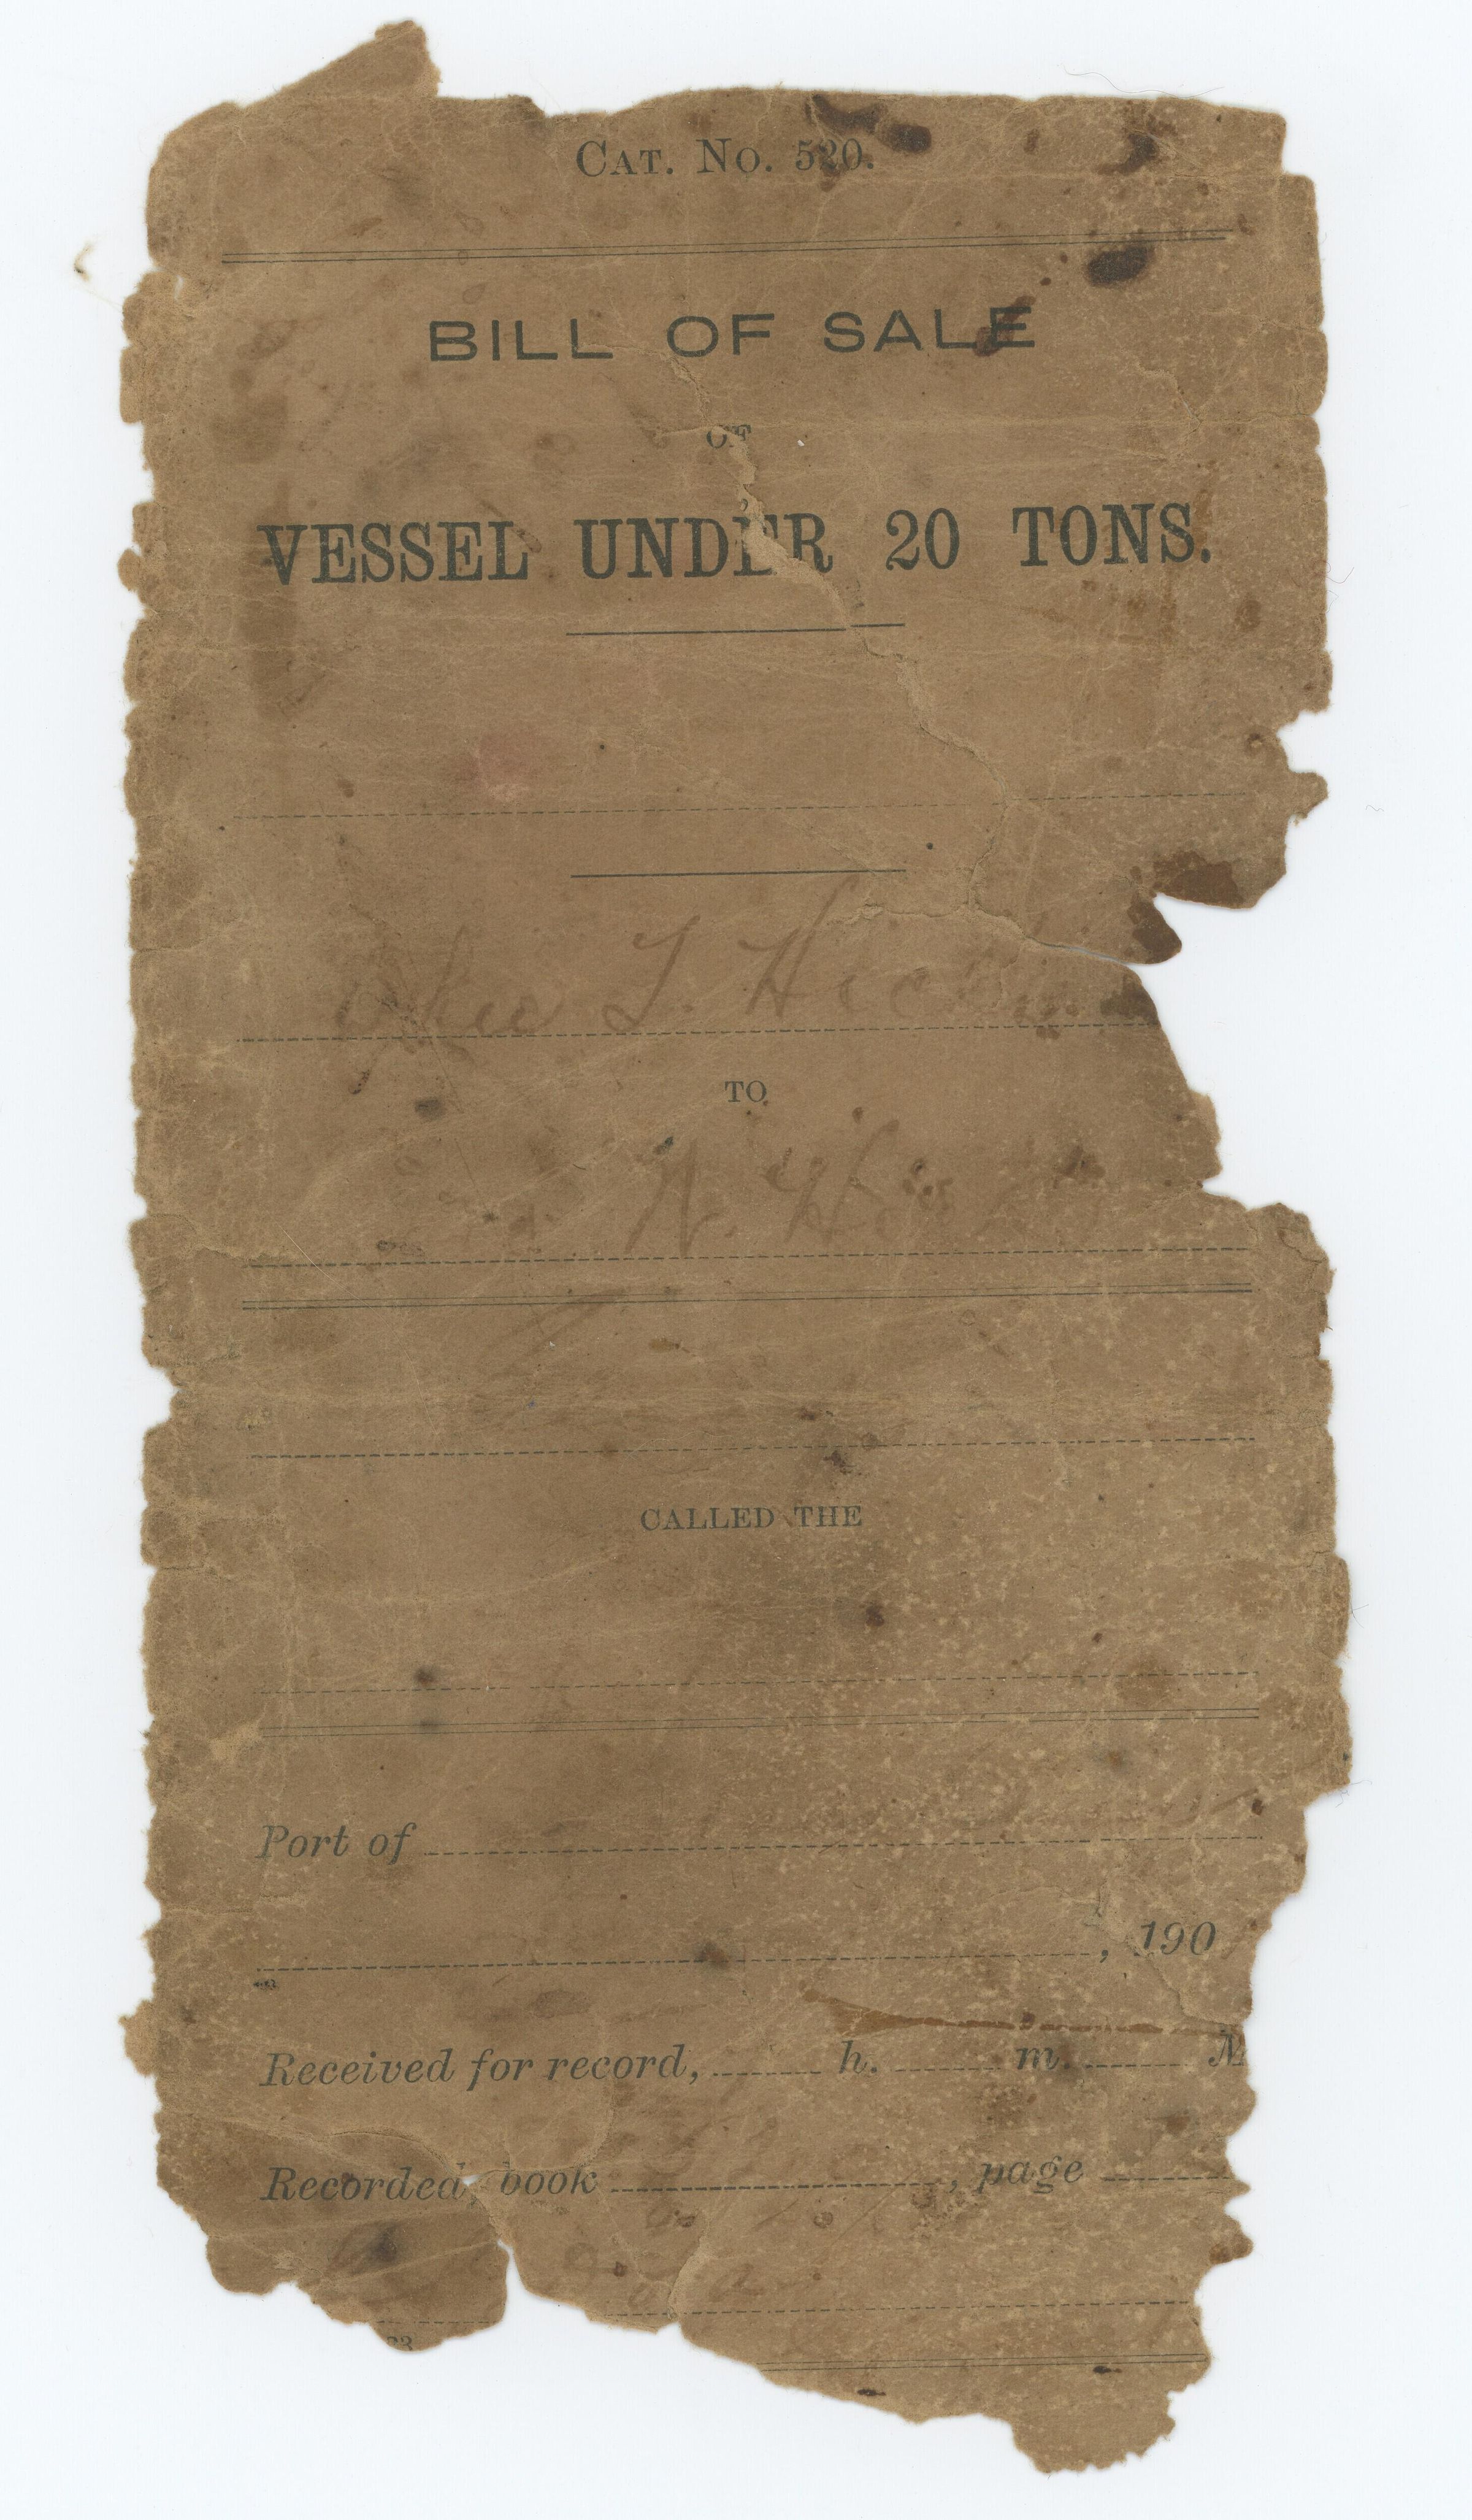 CAT. NO. 520.
BILL OF SALE
OF
VESSEL UNDER 20 TONS.
T. 
TO
N.
CALLED THE
Port of
, 190
Received for record, h. m. M
Recorded, book , page